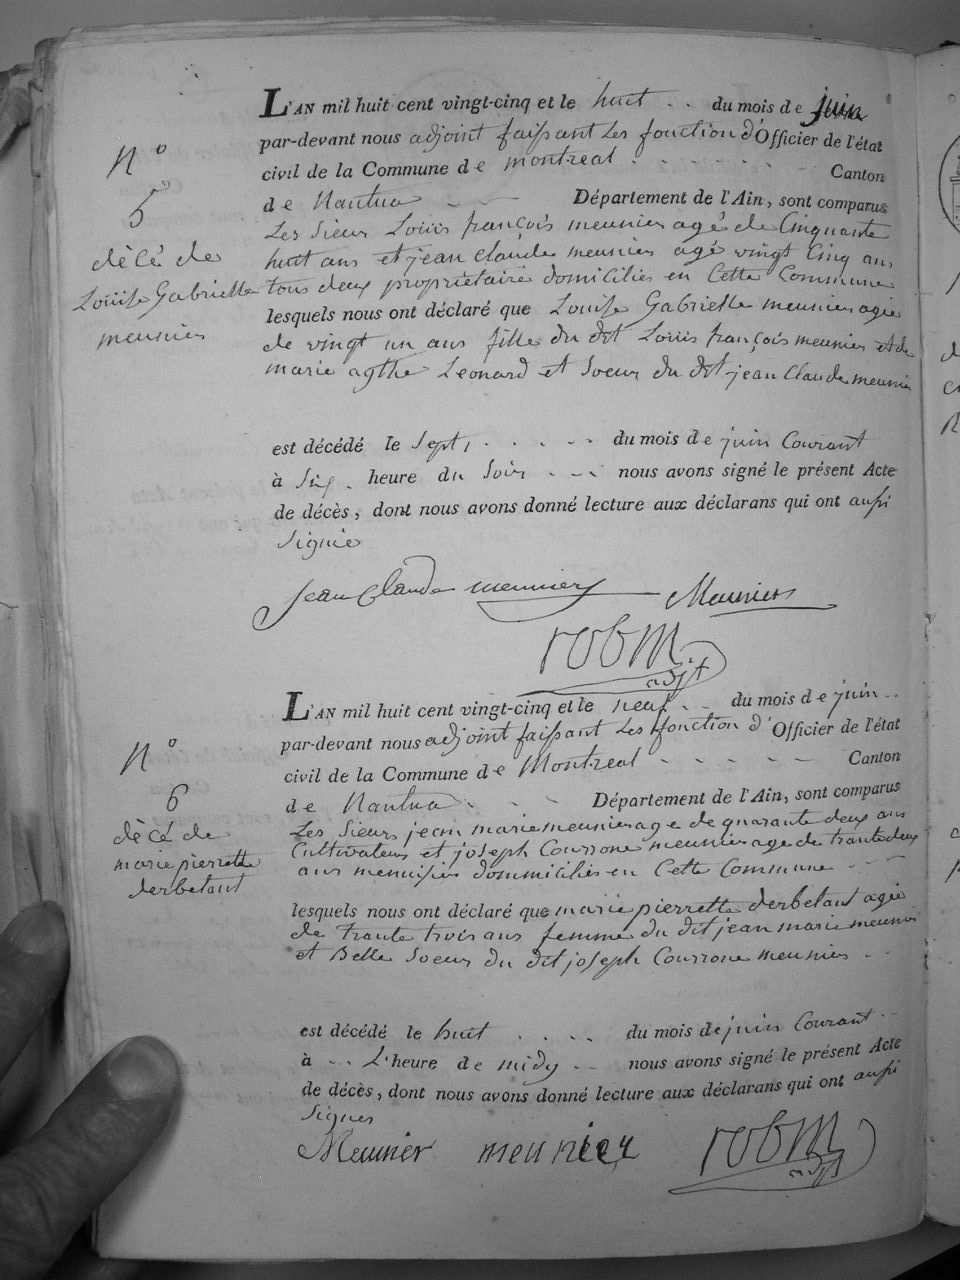 L'AN mil huit cent vingt-cinq et le huit . . du mois de juin
par-devant nous adjoint faissant les fonction d'Officier de l'état
civil de la Commune de montreal . - - - - - Canton
de Nantua - - Département de l'Ain, sont comparus
Les Sieur Louis françois meunier agé de Cinquante
huit ans et jean claude meunier agé vingt Cinq ans
tous deux proprietaire domiciliés en Cette Commune
lesquels nous ont déclaré que Louise Gabrielle meunier agée
de vingt un ans fille du dit Louis françois meunier et de
marie agthe Leonard et Soeur du dit jean Claude meunier
est décédé le Sept, . . - - . du mois de juin Courant
à Six . heure du Soir - - - nous avons signé le présent Acte
de décès, dont nous avons donné lecture aux déclarans qui ont aussi
Signée
N°
5
décé de
Louise Gabrielle
meunier
jean Claude meunier Meunier
robin
adjt
L'AN mil huit cent vingt-cinq et le neuf . - du mois de juin - .
par-devant nous adjoint faissant Les fonction d'Officier de l'état
civil de la Commune de Montreal - - - - - Canton
de Nantua - - - Département de l'Ain, sont comparus
Les Sieurs jean marie meunier age de quarante deux ans
Cultivateur et joseph Courrone meunier age de trante deux
ans menusier dommiciliés en Cette Commune - -
lesquels nous ont déclaré que marie pierrette derbelant agée
de trante trois ans femme du dit jean marie meunier
et Belle Soeur du dit joseph Courrone meunier - .
est décédé le huit . . . . du mois de juin Courant - -
à - - L'heure de midy - - nous avons signé le présent Acte
de décès, dont nous avons donné lecture aux déclarans qui ont aussi
Signes
N°
6
décé de
marie pierrette
derbelant
Meunier meunier robin
adjt